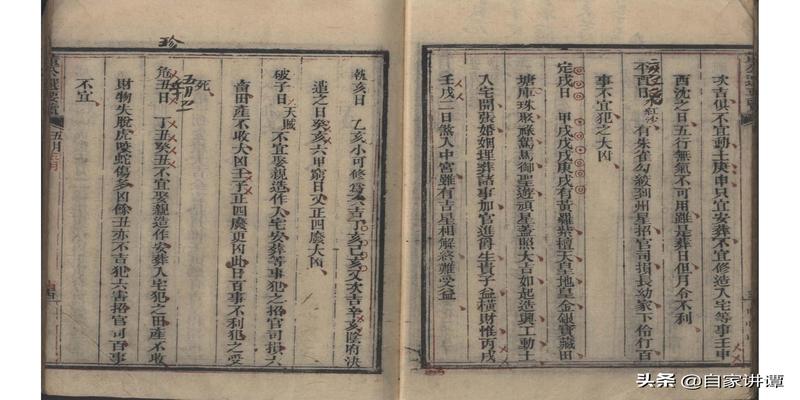 次吉俱不宜動土庚申只宜安葬不宜修造入宅等事壬申
酉沈之日五行無氣不可用雖是葬日但月令不利
有朱雀勾絞到州星招官司損長幼家下伶仃百
事不宜犯之大凶
定戌日 甲戌戊戌庚戌有黃羅紫檀天皇地皇金銀寶藏田
塘庫珠聚祿驛馬御聖遊頭星蓋照大吉如起造興工動土
入宅開張婚姻埋葬諸事加官進爵生貴子益橫財惟丙戌
壬戌二日煞入中宮雖有吉星相解終難受益
執亥日 乙亥小可修為次吉丁亥己亥又次吉辛亥陰府決
遣之日癸亥六甲窮日又正四廢大凶
破子日 天賊 不宜娶親造作入宅安葬等事犯之招官司損六
畜田產不收大凶壬子正四廢更凶此日百事不利犯之受
死
危丑日 丁丑癸丑不宜娶親造作安葬入宅犯之田產不收
財物失脫虎咬蛇傷多凶餘丑亦不吉犯六害招官司百事
不宜
五月
珍
头条 @自家讲谭